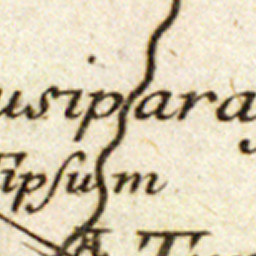 usiparag
Tipſum